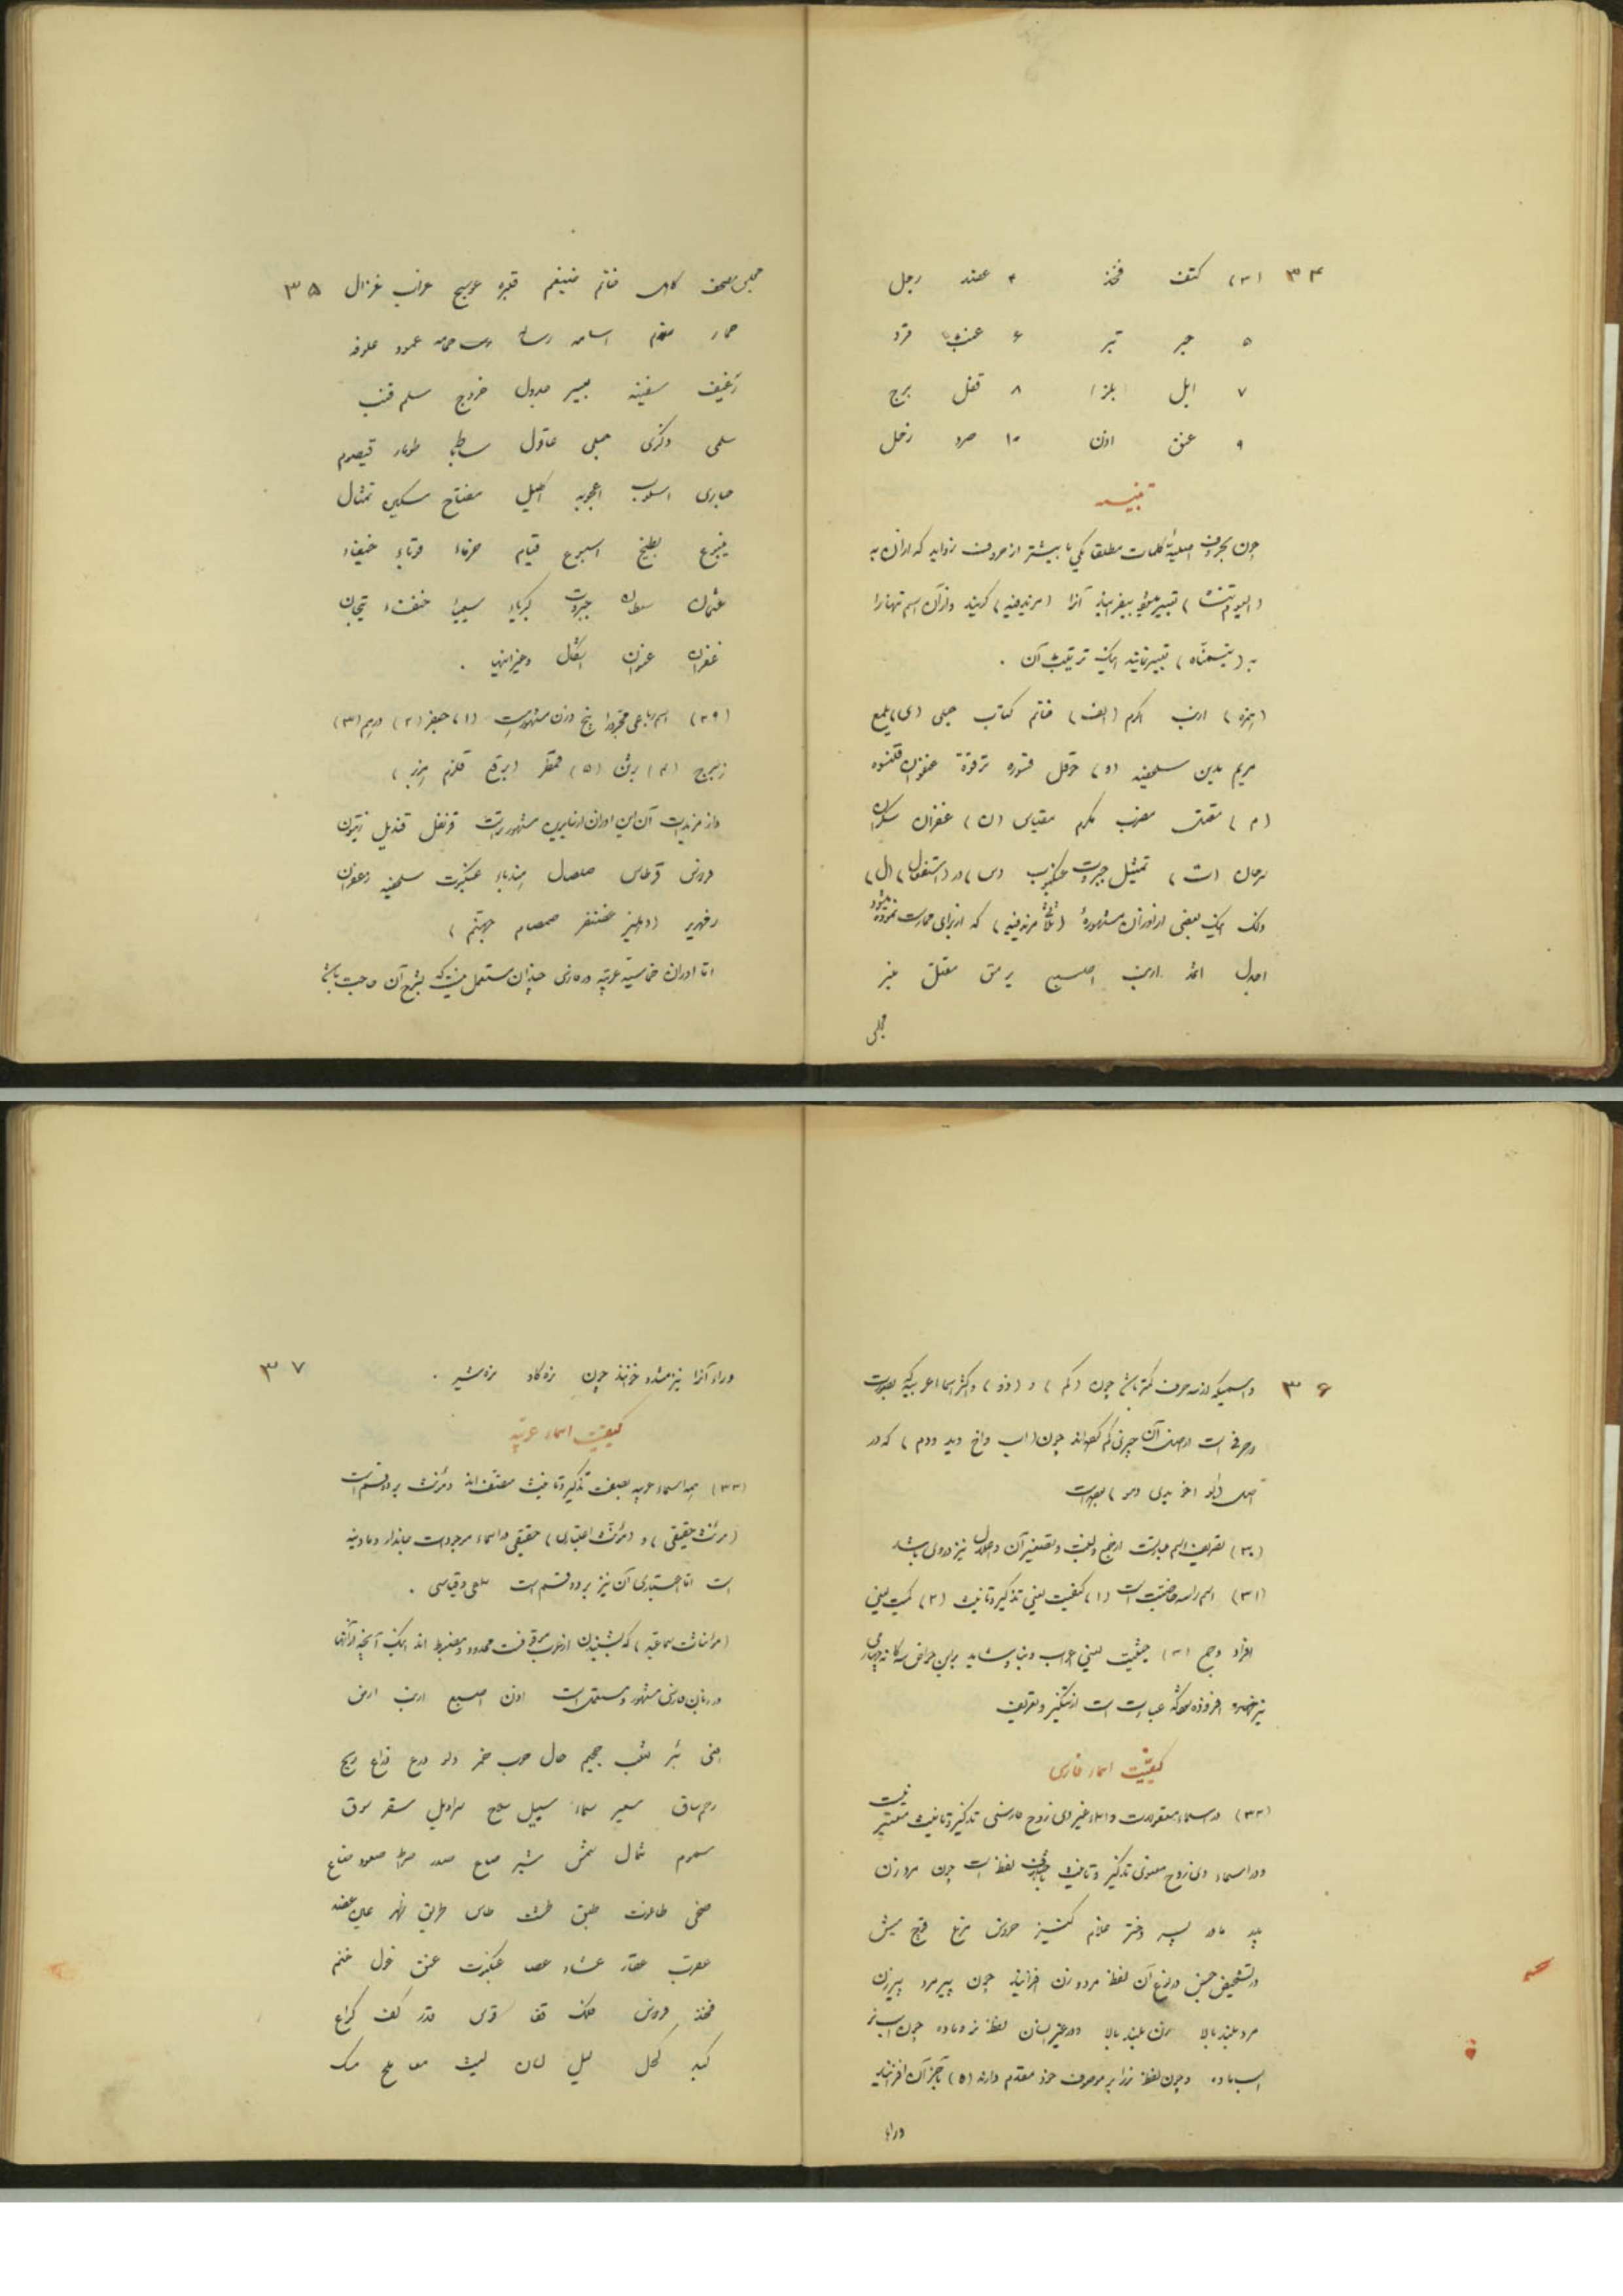 ۳۴
(۳) کتف فخذ ۴ عضد رجل
۵ حبر تبر ۶ عنب قرد
۷ ابل بلز ۸ قفل برج
۹ عنق اذن ۱۰ صرد زحل
تنبیه
چون بحروف اصلیهٔ کلمات مطلقا یکی یا بیشتر از حروف زواید که از آن به
(الیوم تنساه) تعبیر میشود بیفزایند آنرا (مزید فیه) گویند و از آن اسم تنها را
به () تعبیر نمایند اینک ترتیب آن .
(همزه) ارنب اکرم (الف) خاتم کتاب حبلی (ی) یلمع
مریم مدین سلحفیه (و) حوقل قسوره ترقوة عنفوان قلنسوه
(م) مقتل مضرب مکرم مقیاس (ن) غفران سکران
سرحان (ت) تمثیل جبروت عنکبوت (س) در (استفعال) (ل)
ذلک اینک بعضی از اوزان مشهورهٔ (ثلاثی مزید فیه) که از برای ممارست نموده میشود
اجدل اثمد ارنب اصبح یرمق مقتل منبر
مجلس
۳۵
مجلس مصحف کاهل خاتم ضیغم قنبره عوسج غراب غزال
حمار اسامه رساله حمامه عمود علوفه
رغیف سفینه جدول خروج سلم قنب
سلمی ذکری حبلی عاقول ساطیا طومار قیصوم
حباری اسلوب اعجوبه اکلیل مفتاح سکین تمثال
ینبوع بطیخ اسبوع قیام ضیفاء
عثمان سلطان جبروت کبریاء سیمیا خنفساء تیجان
غفران عنوان اشکال وغیر اینها .
(۲۹) اسم رباعی مجرد را پنج وزن مشهور است (۱) جعفر (۲) درهم (۳)
زبرج (۴) برثن (۵) قمطر (برقع قلزم هزبر)
و از مزیدات آن این اوزان در فارسی مشهور است قرنفل قندیل زیتون
فردوس قرطاس صلصال هندباء عنکبوت سلحفیه زعفران
زمهریر (دهلیز غضنفر صمصام جهنم)
اما اوزان خماسیهٔ عربیه در فارسی چندان مستعمل نیست که بشرح آن حاجت باشد
۳۶
و اسمیکه از سه حرف کمتر باشد چون (کم) و (ذو) و اکثر اسماء عربیه که بصورت
دو حرفی است از اصل آن چیزی کم کرده‌اند چون (اب و اخ و ید و دم) که در
اصل (ابو اخو یدی دمو) بوده است
(۳۰) تصریف اسم عبارت از جمع و نسبت و تصغیر آن و اعلال نیز در وی باشد
(۳۱) اسم را سه خاصیت است (۱) کیفیت یعنی تذکیر و تانیث (۲) کمیت یعنی
افراد و جمع (۳) حیثیت یعنی اعراب و بنا و شاید براین خواص سه گانه چهارمی
نیز افزوده شود که عبارت است از تنکیر و تعریف
کیفیت اسماء فارسی
(۳۲) در اسماء معقولات و اسماء غیر ذی روح فارسی تذکیر و تانیث معتبر نیست
و در اسماء ذی روح معنوی تذکیر و تانیث باختلاف لفظ است چون مرد زن
پدر مادر پسر دختر غلام کنیز خروس مرغ قوچ میش
در تشخیص جنس در نوع آن لفظ مرد و زن افزایند چون پیرمرد پیرزن
مرد بلند بالا زن بلند بالا و در غیر انسان لفظ نر و ماده چون اسب نر
اسب ماده و چون لفظ نر را بر موصوف خود مقدم دارند (ه) بآخر آن افزایند
و راء آنرا
۳۷
و راء آنرا نیز مشدد خوانند چون نره گاو نره شیر .
کیفیت اسماء عربیه
(۳۳) همه اسماء عربیه بصفت تذکیر و تانیث متصف‌اند و مؤنث بر دو قسم است
(مؤنث حقیقی) و (مؤنث اعتباری) حقیقی در اسماء موجودات جاندار و مادینه
است اما اعتباری آن نیز بر دو قسم است سماعی و قیاسی .
(مؤنثات سماعیه) که بشنیدن از عرب موقوفست محدود و مضبوط اند اینک آنچه از آنها
در زبان فارسی مشهور و مستعمل است اذن اصبع ارنب ارض
افعی بئر ثعلب جحیم حال حرب خمر دلو درع ذراع ریح
رحم ساق سعیر سماء سبیل سلاح سراویل سقر سوق
سموم شمال شمس شعیر صاع صدر صراط صعود ضباع
ضحی طاغوت طبق طست طاس طریق ظهر عین عضد
عقرب عقاب عشاء عصا عنکبوت عنق غول غنم
فخذ فردوس فلک قفا قوس قدر کف کراع
کبد کحل لیل لسان لیث معا ملح مسک